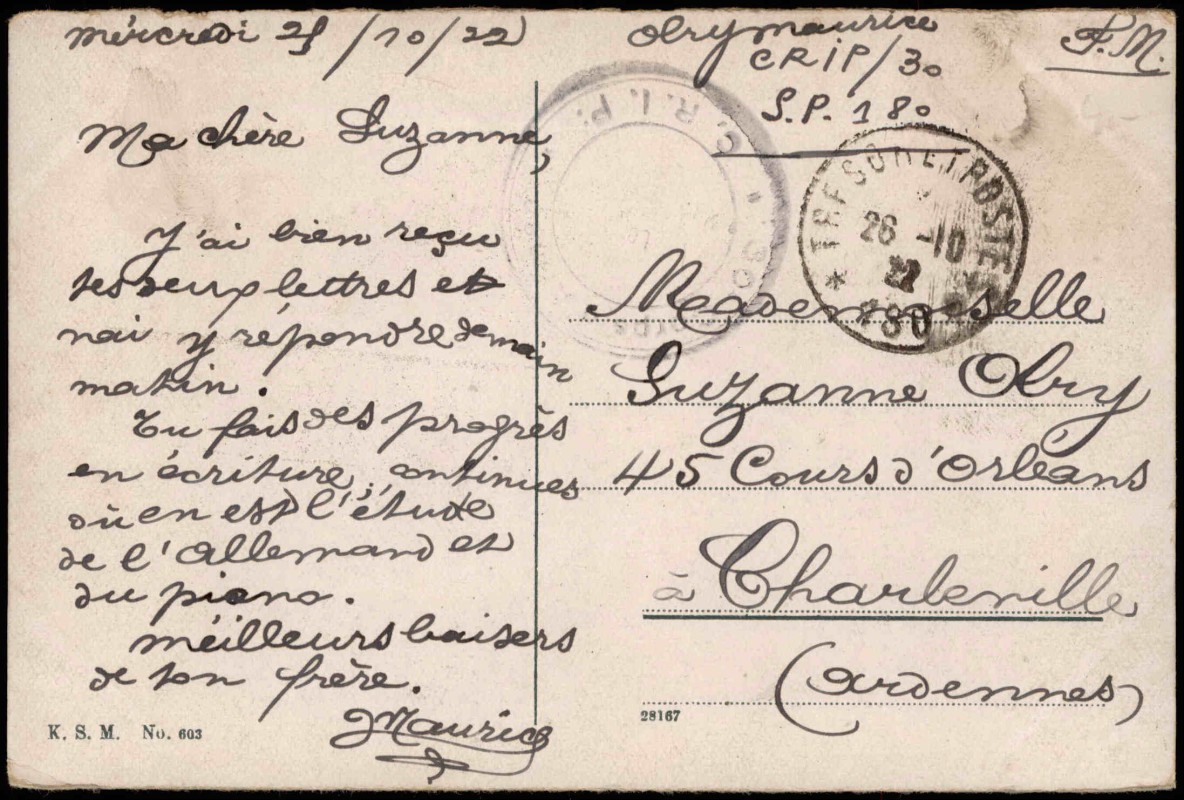 mercredi 25/10/22
Ma chère Suzanne,
J'ai bien reçu
tes deux lettres et
vai y répondre demain
matin.
Tu fais des progrès
en écriture, continues
où en est l'étude
de l'allemand et
du piano.
méilleurs baisers
de ton frère.
Maurice
K. S. M. No. 603
Obry maurice
CRIP/30
S.P. 180
F.M.
C.R.I.P. * 30
TRESOR ET POSTES
26 -10
22
* 180 *
Mademoiselle
Suzanne Obry
45 Cours d'Orléans
à Charleville
(Ardennes)
28167